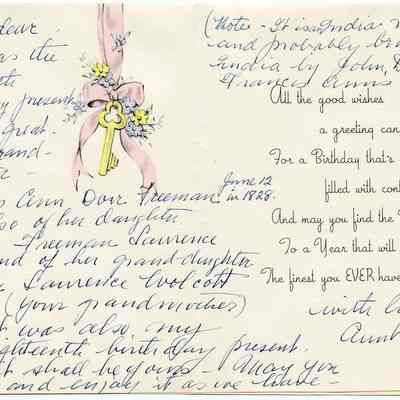 dear
as the
present
great.
and-
Ann Dorr Freeman June 12 in 1828.
so of her daughter
Freeman Lawrence
nd of her grand-daughter
Lawrence Wolcott
(your grandmother)
t was also my
ighteenth birthday present.
t shall be yours - May you
and enjoy it as we have -
(Note - It is an India
and probably bro
India by John, D
Francis
All the good wishes
a greeting can
For a Birthday that's
filled with cont
And may you find the
To a Year that will
The finest you EVER have
with lo
Aunt